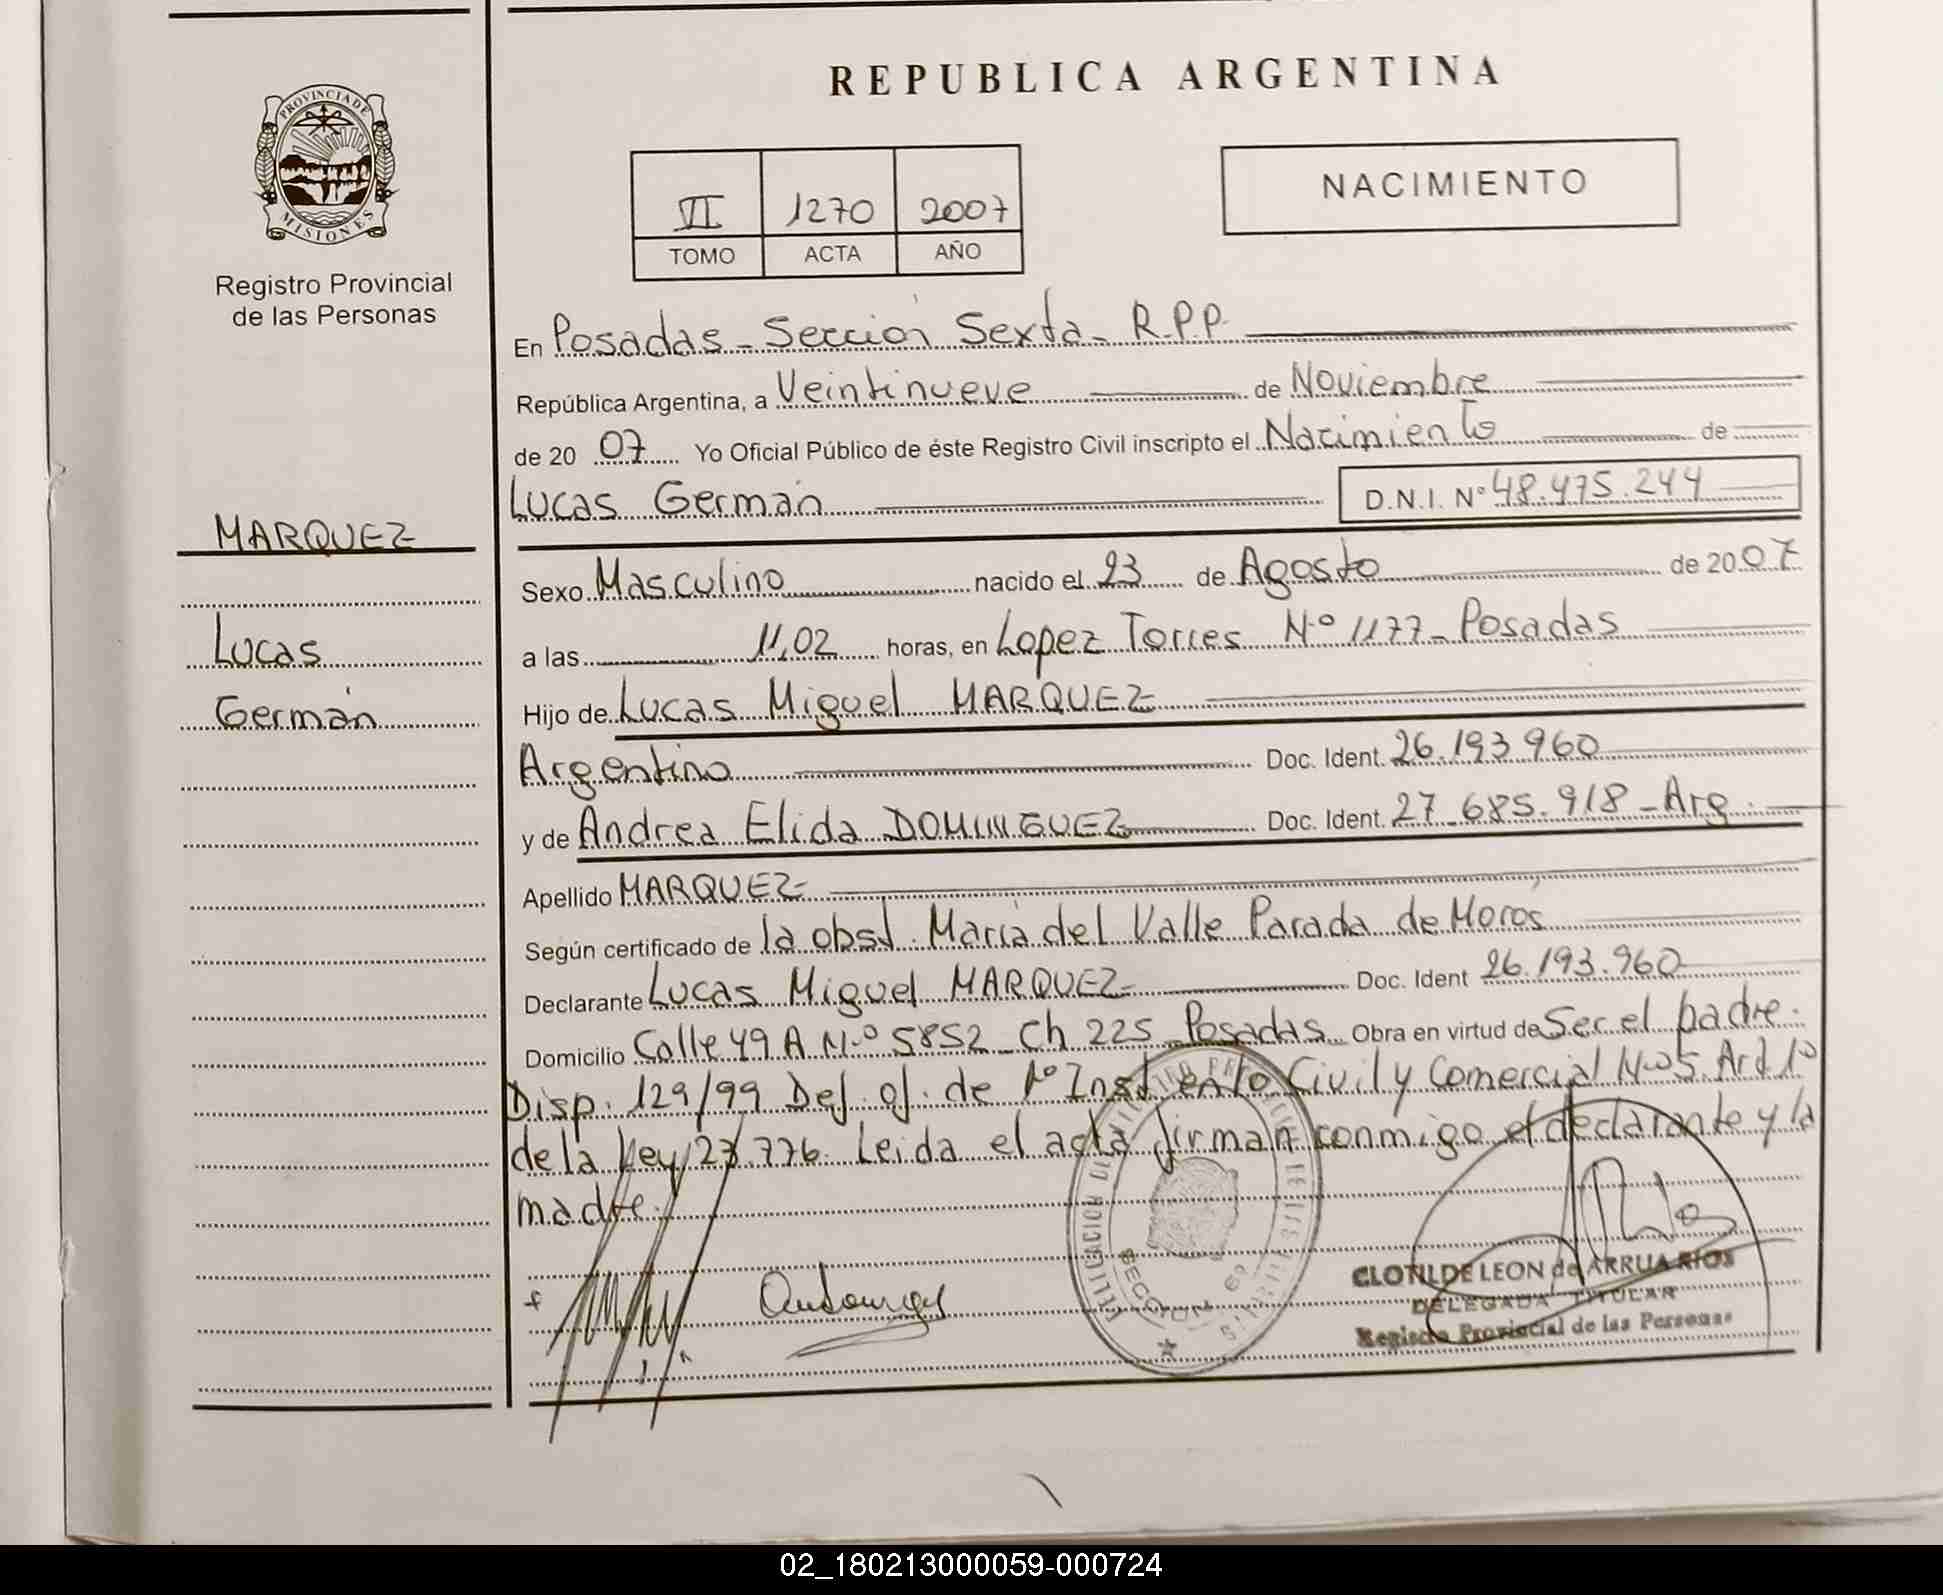 REPUBLICA ARGENTINA
PROVINCIA DE MISIONES
Registro Provincial
de las Personas
VI 1270 2007
TOMO ACTA AÑO
NACIMIENTO
En Posadas - Sección Sexta - R.P.P.
República Argentina, a Veintinueve de Noviembre
de 20 07 Yo Oficial Público de éste Registro Civil inscripto el Nacimiento de
Lucas Germán D.N.I. N° 48.475.244
MARQUEZ
Lucas
Germán
Sexo Masculino nacido el 23 de Agosto de 20 07
a las 11,02 horas, en Lopez Torres N° 1177 - Posadas
Hijo de Lucas Miguel MARQUEZ
Argentino Doc. Ident. 26.193.960
y de Andrea Elida DOMINGUEZ Doc. Ident. 27.685.918 - Arg.
Apellido MARQUEZ
Según certificado de la obst. María del Valle Parada de Moros
Declarante Lucas Miguel MARQUEZ Doc. Ident 26.193.960
Domicilio Calle 49 A N.° 5852 Ch 225 Posadas Obra en virtud de Ser el padre.
Disp. 129/99 Def. of. de 1° Inst en lo Civil y Comercial N°5. Art 1°
de la Ley 23.776. Leida el acta firman conmigo el declarante y la
madre.
SECCION 6º
CLOTILDE LEON de ARRUA RIOS
DELEGADA TITULAR
Registro Provincial de las Personas
02_180213000059-000724